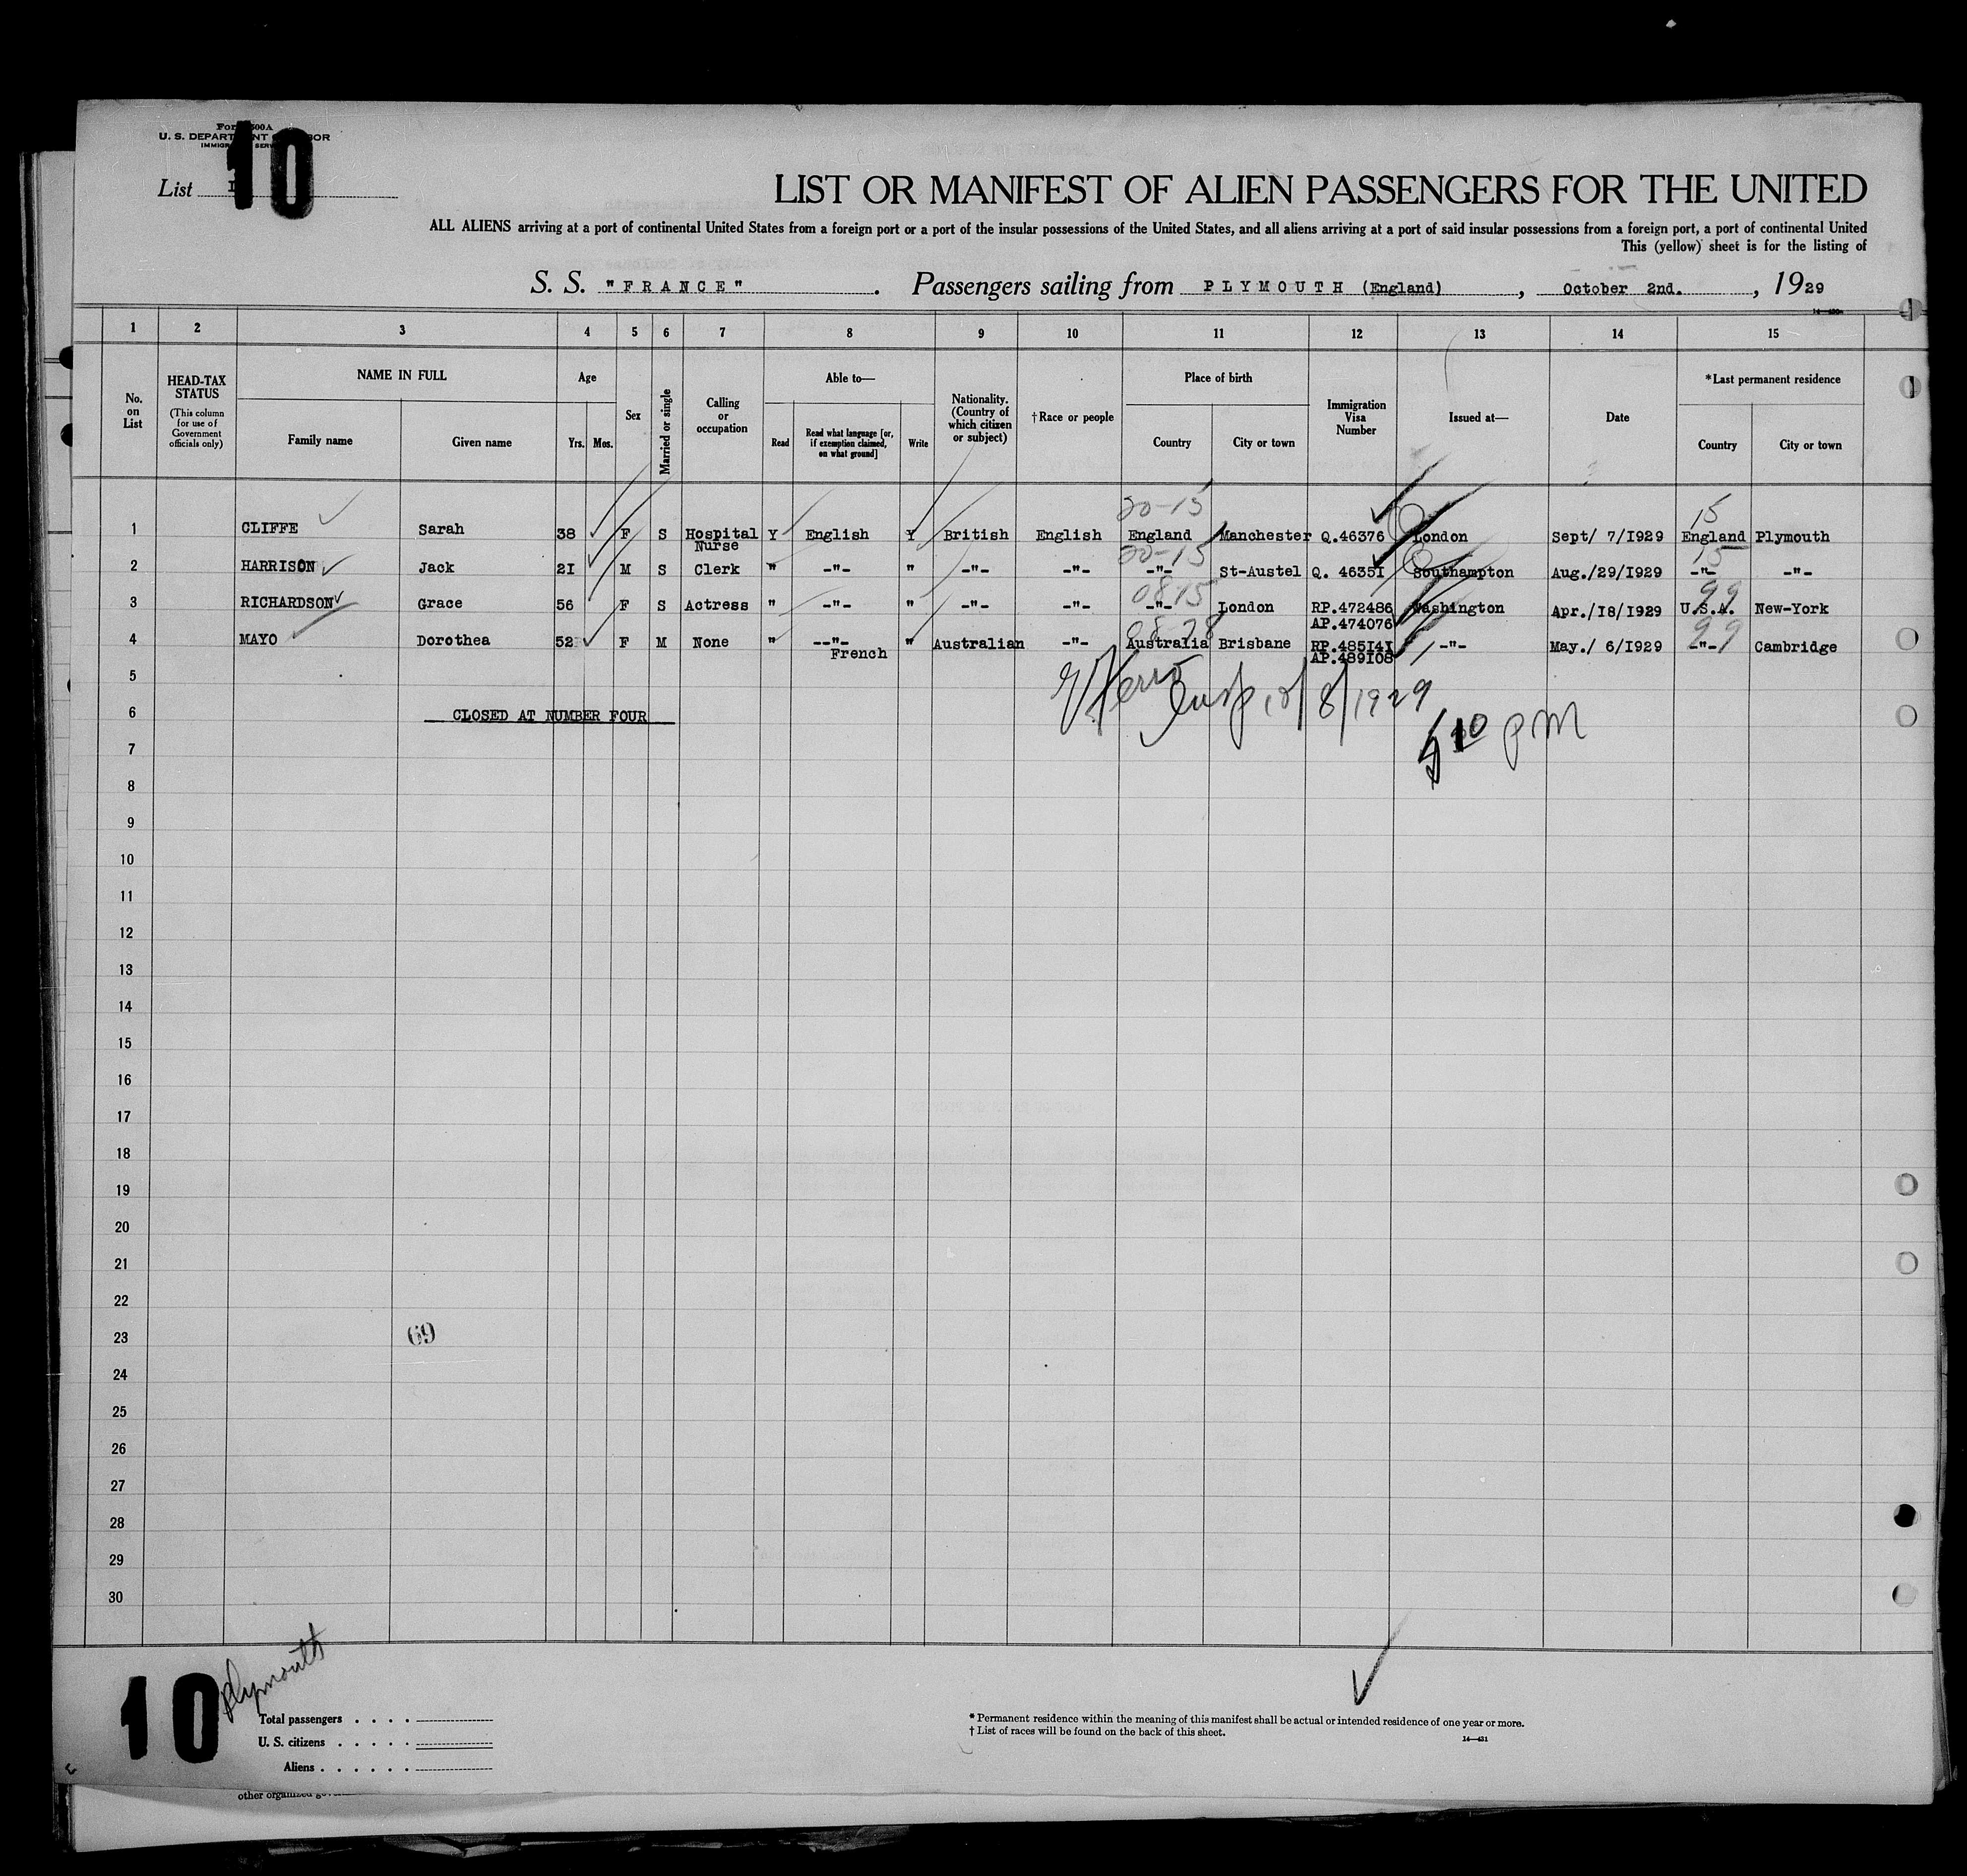 10
U. S. DEPART
List
LIST OR MANIFEST OF ALIEN PASSENGERS FOR THE UNITED
ALL ALIENS arriving at a port of continental United States from a foreign port or a port of the insular possessions of the United States, and all aliens arriving at a port of said insular possessions from a foreign port, a port of continental United
This (yellow) sheet is for the listing of
S. S. "FRANCE". Passengers sailing from PLYMOUTH (England), October 2nd., 1929
1 2 3 4 5 6 7 8 9 10 11 12 13 14 15
No. on List
HEAD-TAX STATUS (This column for use of Government officials only)
NAME IN FULL
Family name Given name
Age
Yrs. Mos.
Sex
Married or single
Calling or occupation
Able to—
Read Read what language [or, if exemption claimed, on what ground] Write
Nationality. (Country of which citizen or subject)
†Race or people
Place of birth
Country City or town
Immigration Visa Number
Issued at—
Date
*Last permanent residence
Country City or town
20-15 15
1 CLIFFE Sarah 38 F S Hospital Nurse Y English Y British English England Manchester Q.46376 London Sept/ 7/I929 England Plymouth
20-15 15
2 HARRISON Jack 2I M S Clerk " -"- " -"- -"- -"- St-Austel Q. 4635I Southampton Aug./29/I929 -"- -"-
0815 99
3 RICHARDSON Grace 56 F S Actress " -"- " -"- -"- -"- London RP.472486 AP.474076 Washington Apr./I8/I929 U.S.A. New-York
08-28 99
4 MAYO Dorothea 52 F M None " --"- French " Australian -"- Australia Brisbane RP.485I4I AP.489I08 -"- May./ 6/I929 -"- Cambridge
5
Insp 10/8/1929
6 CLOSED AT NUMBER FOUR
pm
7
8
9
10
11
12
13
14
15
16
17
18
19
20
21
22
23 69
24
25
26
27
28
29
30
10
plymouth
Total passengers . . . .
U. S. citizens . . . . .
Aliens . . . . . .
* Permanent residence within the meaning of this manifest shall be actual or intended residence of one year or more.
† List of races will be found on the back of this sheet.
14—431
other organized